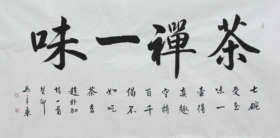 茶禪一味
七碗
受至
味一
壺得
真趣
空持
百千
偈不
如吃
茶去
趙朴初
詩一首